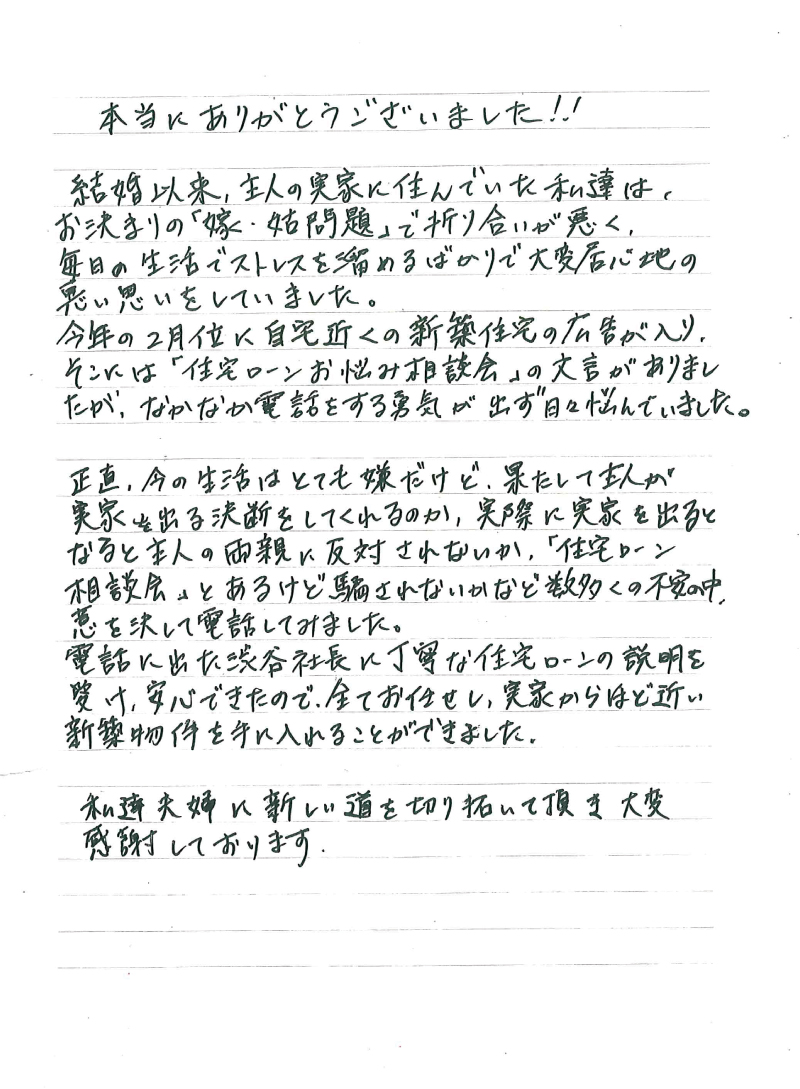 本当にありがとうございました!!
結婚以来、主人の実家に住んでいた私達は、
お決まりの「嫁・姑問題」で折り合いが悪く、
毎日の生活でストレスを溜めるばかりで大変居心地の
悪い思いをしていました。
今年の2月位に自宅近くの新築住宅の広告が入り、
そこには「住宅ローンお悩み相談会」の文言がありまし
たが、なかなか電話をする勇気が出ず日々悩んでいました。
正直、今の生活はとても嫌だけど、果たして主人が
実家を出る決断をしてくれるのか、実際に実家を出ると
なると主人の両親に反対されないか、「住宅ローン
相談会」とあるけど騙されないかなど数多くの不安の中、
意を決して電話してみました。
電話に出た渋谷社長に丁寧な住宅ローンの説明を
受け、安心できたので、全てお任せし、実家からほど近い
新築物件を手に入れることができました。
私達夫婦に新しい道を切り拓いて頂き大変
感謝しております。